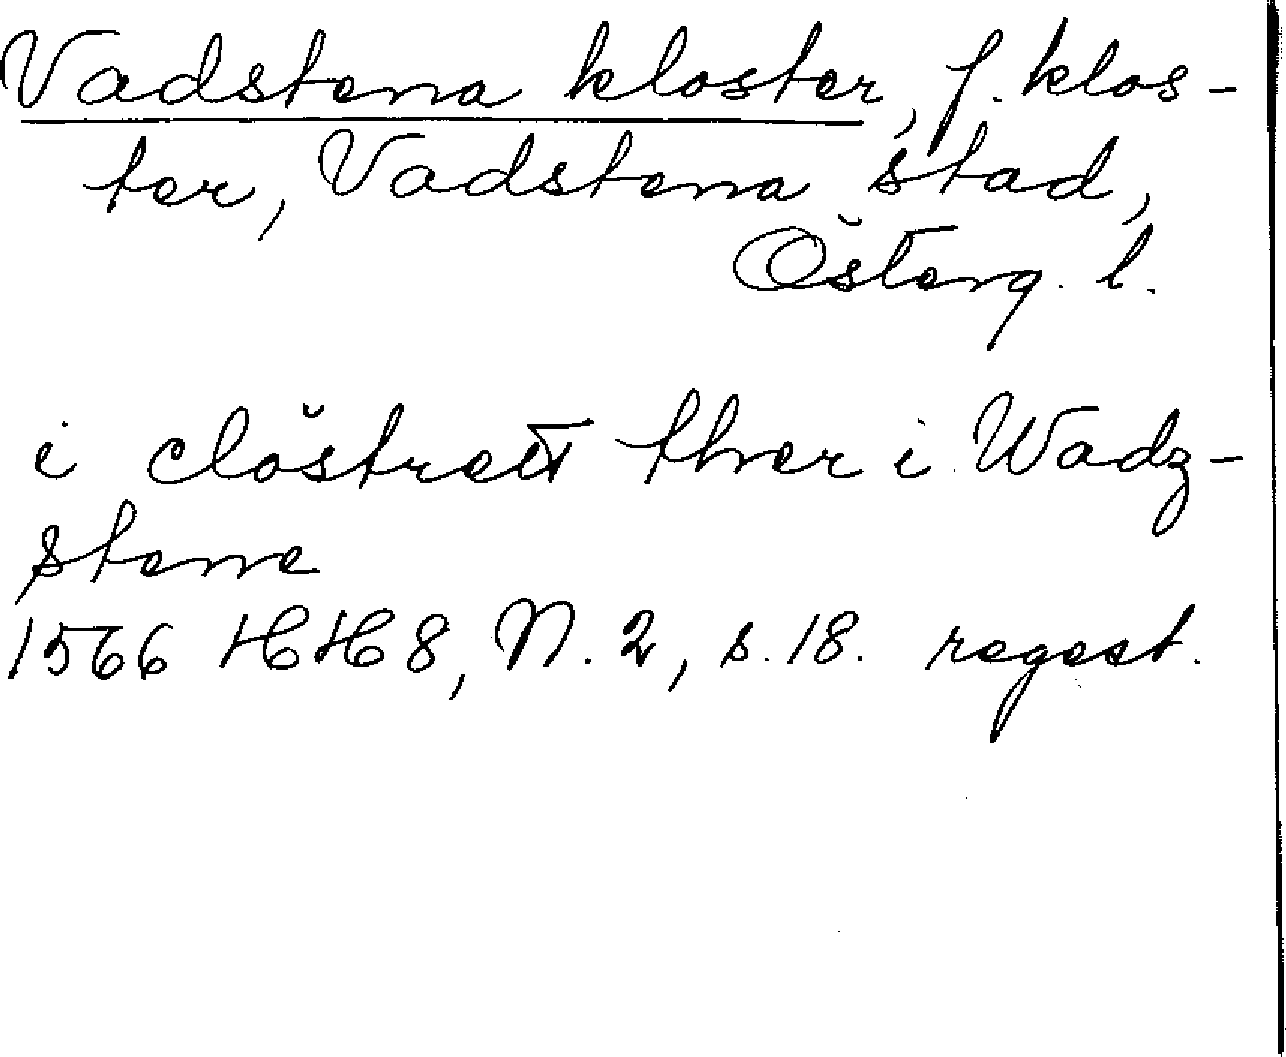 Vadstena kloster, f. klos-
ter, Vadstena stad,
Österg. l.
i clöstrett ther i Wadz-
stene
1566 HH 8, N. 2, s. 18. regest.